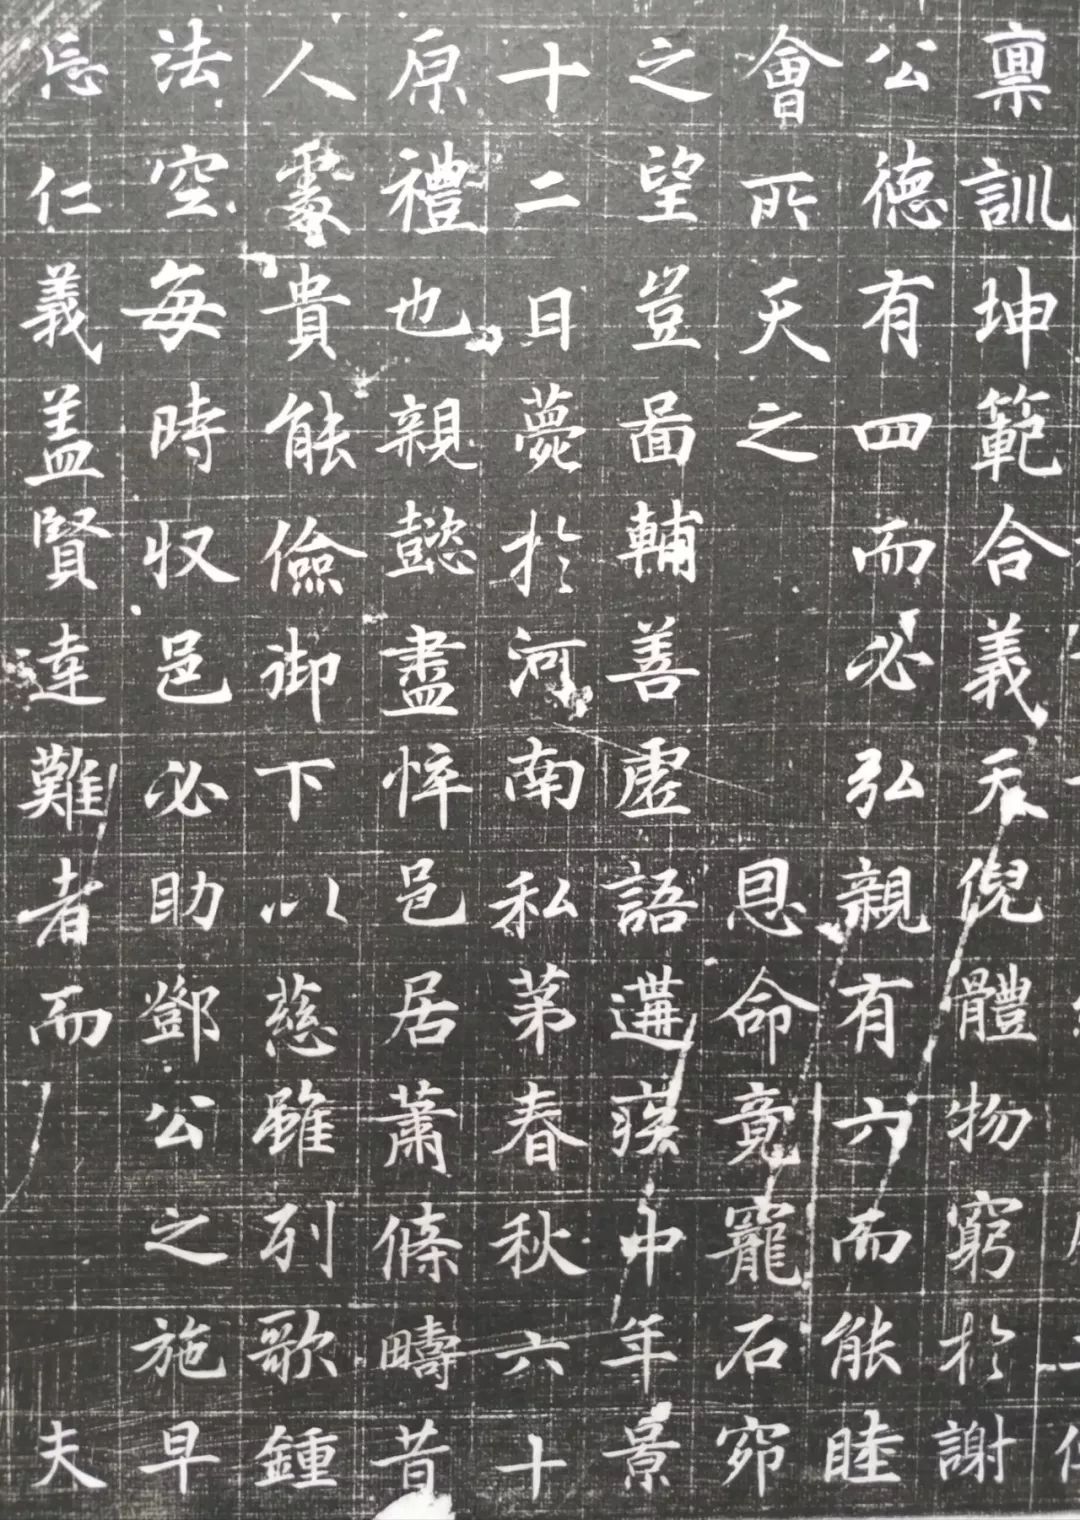 稟訓坤範合義天倪體物窮於謝
公德有四而必弘親有六而能睦
會所天之恩命竟窀石窌
之望豈啚輔善虛語遘瘼中年景
十二日薨於河南私苐春秋六十
原禮也親懿盡悴邑居蕭條疇昔
人處貴能儉御下以慈雖列歌鍾
法空每時収邑必助鄧公之施早
忘仁義盖賢達難者而夫